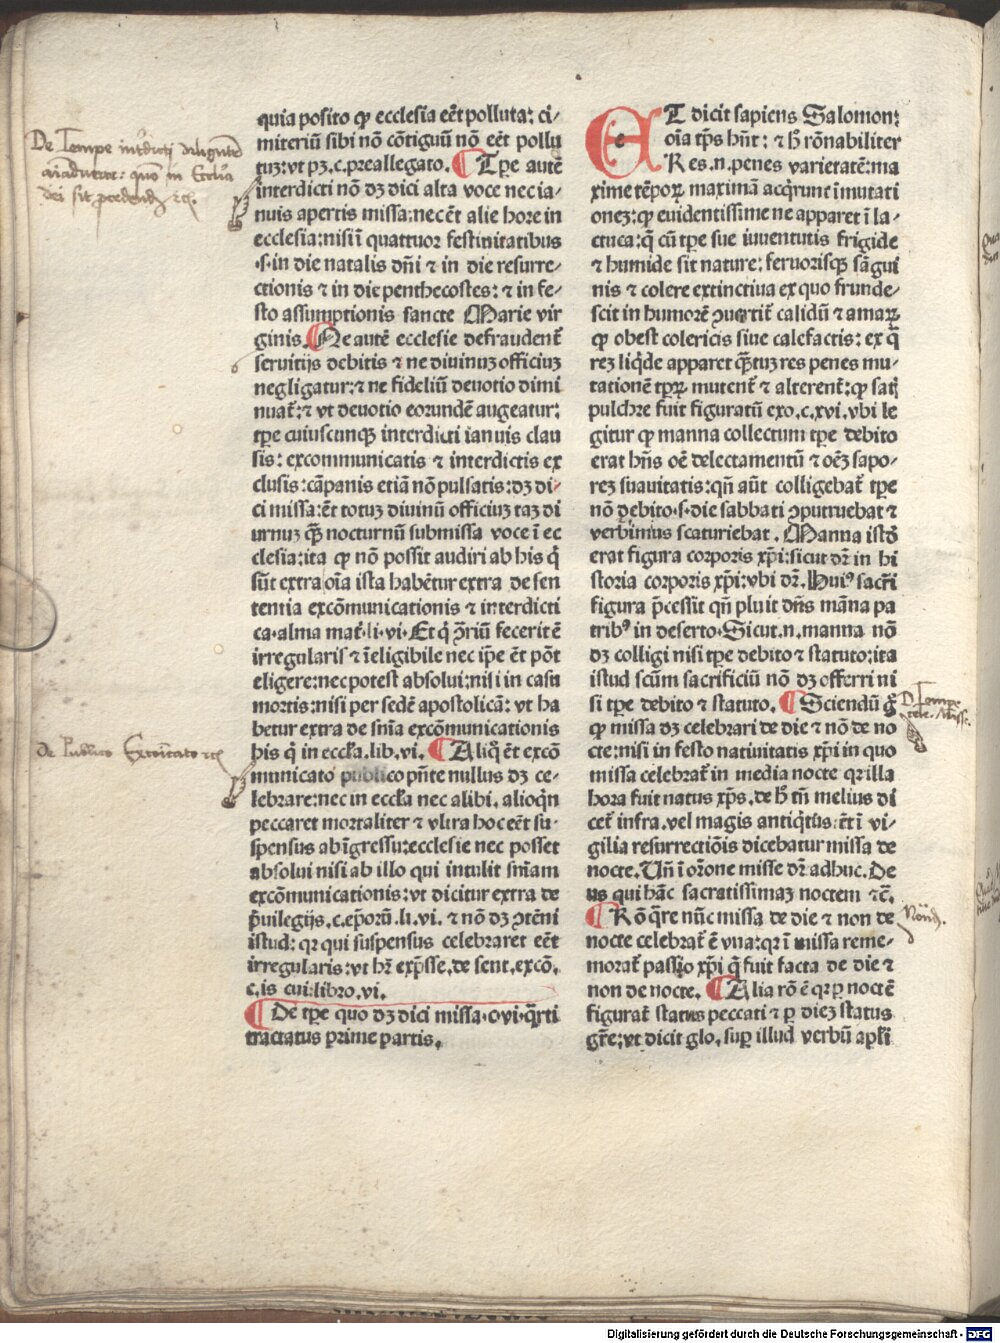 quia posito ꝙ ecclesia eēt polluta: ci-
miteriū sibi nō cōtiguū nō eēt pollu
tuꝫ: vt pꝫ.c.preallegato. ¶ Tꝑe autē
interdicti nō dꝫ dici alta voce nec ia-
nuis apertis missa: nec ēt alie hore in
ecclesia: nisi ī quattuor festiuitatibus
.s. in die natalis dñi ⁊ in die resurre-
ctionis ⁊ in die penthecostes: ⁊ in fe-
sto assumptionis sancte Marie vir
ginis. ¶ Ne autē ecclesie defraudent̄
seruitijs debitis ⁊ ne diuinuꝫ officiuꝫ
negligatur: ⁊ ne fideliū deuotio dimi
nuat̄: ⁊ vt deuotio eorundē augeatur:
tꝑe cuiuscunqꝫ interdicti ianuis clau
sis: excommunicatis ⁊ interdictis ex
clusis: cāpanis etiā nō pulsatis: dꝫ di-
ci missa: ēt totuꝫ diuinū officiuꝫ taꝫ di
urnuꝫ qꝫ̄ nocturnū submissa voce ī ec
clesia: ita ꝙ nō possit audiri ab his q̇
sūt extra oīa ista habētur extra de sen
tentia excōmunicationis ⁊ interdicti
ca. alma mat̄. li. vi. Et q̇ ꝯ̄riū fecerit ē
irregularis ⁊ īeligibile nec ip̄e ēt pōt
eligere: nec potest absolui: nisi in casu
mortis: nisi per sedē apostolicā: vt ha
betur extra de sn̄ia excōmunicationis
his q̇ in eccl̄a. lib. vi. ¶ Aliq̇ ēt excō
municato publico pn̄te nullus dꝫ ce-
lebrare: nec in eccl̄a nec alibi. alioqn̄
peccaret mortaliter ⁊ vltra hoc eēt su-
spensus ab īgressu: ecclesie nec posset
absolui nisi ab illo qui intulit sn̄iam
excōmunicationis: vt dicitur extra de
p̄uilegijs. c. ep̄orū. li. vi. ⁊ nō dꝫ ꝯtēni
istud: qꝛ qui suspensus celebraret eēt
irregularis: vt hr̄ exp̄sse. de sent. excō.
c. is cui: libro. vi.
¶ De tꝑe quo dꝫ dici missa. c. vi. q̄rti
tractatus prime partis.
ET dicit sapiens Salomon:
oīa tꝑs hn̄t: ⁊ h̄ rōnabiliter
Res. n. penes varietatē: ma
xime tēpoꝝ maximā acq̇runt īmutati
oneꝫ: ꝙ euidentissime ne apparet ī la-
ctuca: q̄ cū tꝑe sue iuuentutis frigide
⁊ humide sit nature: feruorisqꝫ sāgui
nis ⁊ colere extinctiua ex quo frunde-
scit in humorē ꝯuertit̄ calidū ⁊ amaꝝ
ꝙ obest colericis siue calefactis: ex q̇
reꝫ liq̇de apparet qꝫ̄tuꝫ res penes mu-
tationē tꝑꝝ mutent̄ ⁊ alterent̄: ꝙ satꝭ
pulchre fuit figuratū exo. c. xvi. vbi le
gitur ꝙ manna collectum tꝑe debito
erat hn̄s oē delectamentū ⁊ oēꝫ sapo-
reꝫ suauitatis: qn̄ aūt colligebat̄ tꝑe
nō debito. s. die sabbati ꝯputruebat ⁊
verbimus scaturiebat. Manna istd̄
erat figura corporis xp̄i: sicut dr̄ in hi
storia corporis xp̄i: vbi dr̄. Huiꝰ sacr̄i
figura p̄cessit qn̄ pluit dn̄s māna pa
tribꝰ in deserto. Sicut. n. manna nō
dꝫ colligi nisi tꝑe debito ⁊ statuto: ita
istud scūm sacrificiū nō dꝫ offerri ni
si tꝑe debito ⁊ statuto. ¶ Sciendū ḡ
ꝙ missa dꝫ celebrari de die ⁊ nō de no
cte: nisi in festo natiuitatis xp̄i in quo
missa celebrat̄ in media nocte qꝛ illa
hora fuit natus xp̄s. de h̄ tn̄ melius di
cet̄ infra. vel magis antiq̇tus: ēt ī vi-
gilia resurrectiōis dicebatur missa de
nocte. Un̄ ī orōne misse dr̄ adhuc. De
us qui hāc sacratissimaꝫ noctem ⁊c̄.
¶ Rō q̄re nūc missa de die ⁊ non de
nocte celebrat̄ ē vna: qꝛ ī missa reme-
morat̄ passio xp̄i q̄ fuit facta de die ⁊
non de nocte. ¶ Alia rō ē qꝛ ꝑ noctē
figurat̄ status peccati ⁊ ꝑ dieꝫ status
gr̄e: vt dicit glo. suꝑ illud verbū apl̄i
De Tempe
dei sit
de Publico Excōicato
Digitalisierung gefördert durch die Deutsche Forschungsgemeinschaft - DFG